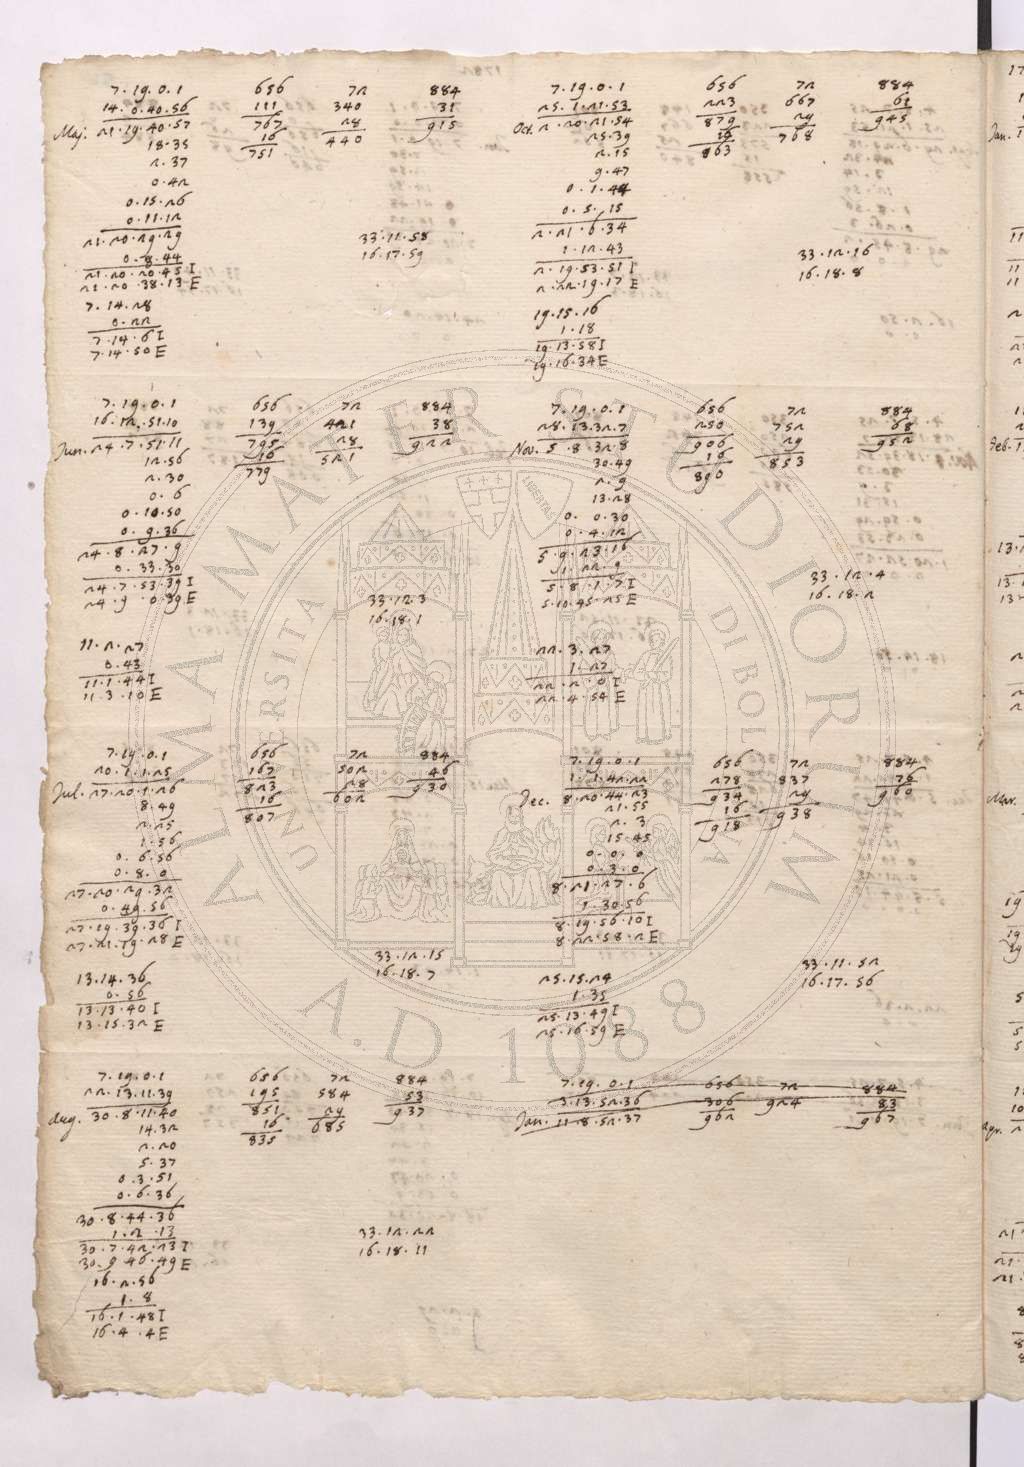 7.19.0.1 656 72 884
14.0.40.56 111 340 31
Maj. 21.19.40.57 767 28 915
18.35 16 440
2.37 751
0.42
0.15.26
0.11.12
21.20.29.29 33.11.58
0.8.44 16.17.59
21.20.20.45 I
21.20.38.13 E
7.14.28
0.22
7.14.6 I
7.14.50 E
7.19.0.1 656 72 884
16.12.51.10 139 421 38
Jun. 24.7.51.11 795 28 922
12.56 16 521
2.30 779
0.6
0.10.50
0.9.36
24.8.27.9
0.33.30
24.7.53.39 I
24.9.0.39 E 33.12.3
16.18.1
11.2.27
0.43
11.1.44 I
11.3.10 E
7.19.0.1 656 72 884
20.1.1.25 167 502 46
Jul. 27.20.1.26 823 28 930
8.49 16 602
2.25 807
1.56
0.6.56
0.8.0
27.20.29.32
0.49.56
27.19.39.36 I
27.21.19.28 E
33.12.15
16.18.7
13.14.36
0.56
13.13.40 I
13.15.32 E
7.19.0.1 656 72 884
22.13.11.39 195 584 53
Aug. 30.8.11.40 851 29 937
14.32 16 685
2.20 835
5.37
0.3.51
0.6.36
30.8.44.36
1.2.13 33.12.22
30.7.42.23 I 16.18.11
30.9.46.49 E
16.2.56
1.8
16.1.48 I
16.4.4 E
7.19.0.1 656 72 884
25.1.21.53 223 667 61
Oct. 2.20.21.54 879 29 945
25.39 16 768
2.15 863
9.47
0.1.44
0.5.15
2.21.6.34
1.12.43 33.12.16
2.19.53.51 I 16.18.8
2.22.19.17 E
19.15.16
1.18
19.13.58 I
19.16.34 E
7.19.0.1 656 72 884
28.13.32.7 250 752 68
Nov. 5.8.32.8 906 29 952
30.49 16 853
2.9 890
13.28
0.0.30
0.4.12
5.9.23.16
1.22.9
5.8.1.7 I 33.12.4
5.10.45.25 E 16.18.2
22.3.27
1.27
22.2.0 I
22.4.54 E
7.19.0.1 656 72 884
1.1.42.22 278 837 76
Dec. 8.20.44.23 934 29 960
21.55 16 938
2.3 918
15.45
0.0.0
0.3.0
8.21.27.6
1.30.56
8.19.56.10 I
8.22.58.2 E
33.11.52
25.15.24 16.17.56
1.35
25.13.49 I
25.16.59 E
7.19.0.1 656 72 884
3.13.52.36 306 924 83
Jan. 11.8.52.37 962 967
Jan.
Feb.
Mar.
Apr.
ALMA MATER STUDIORUM
UNIVERSITA DI BOLOGNA
LIBERTAS
A.D. 1088